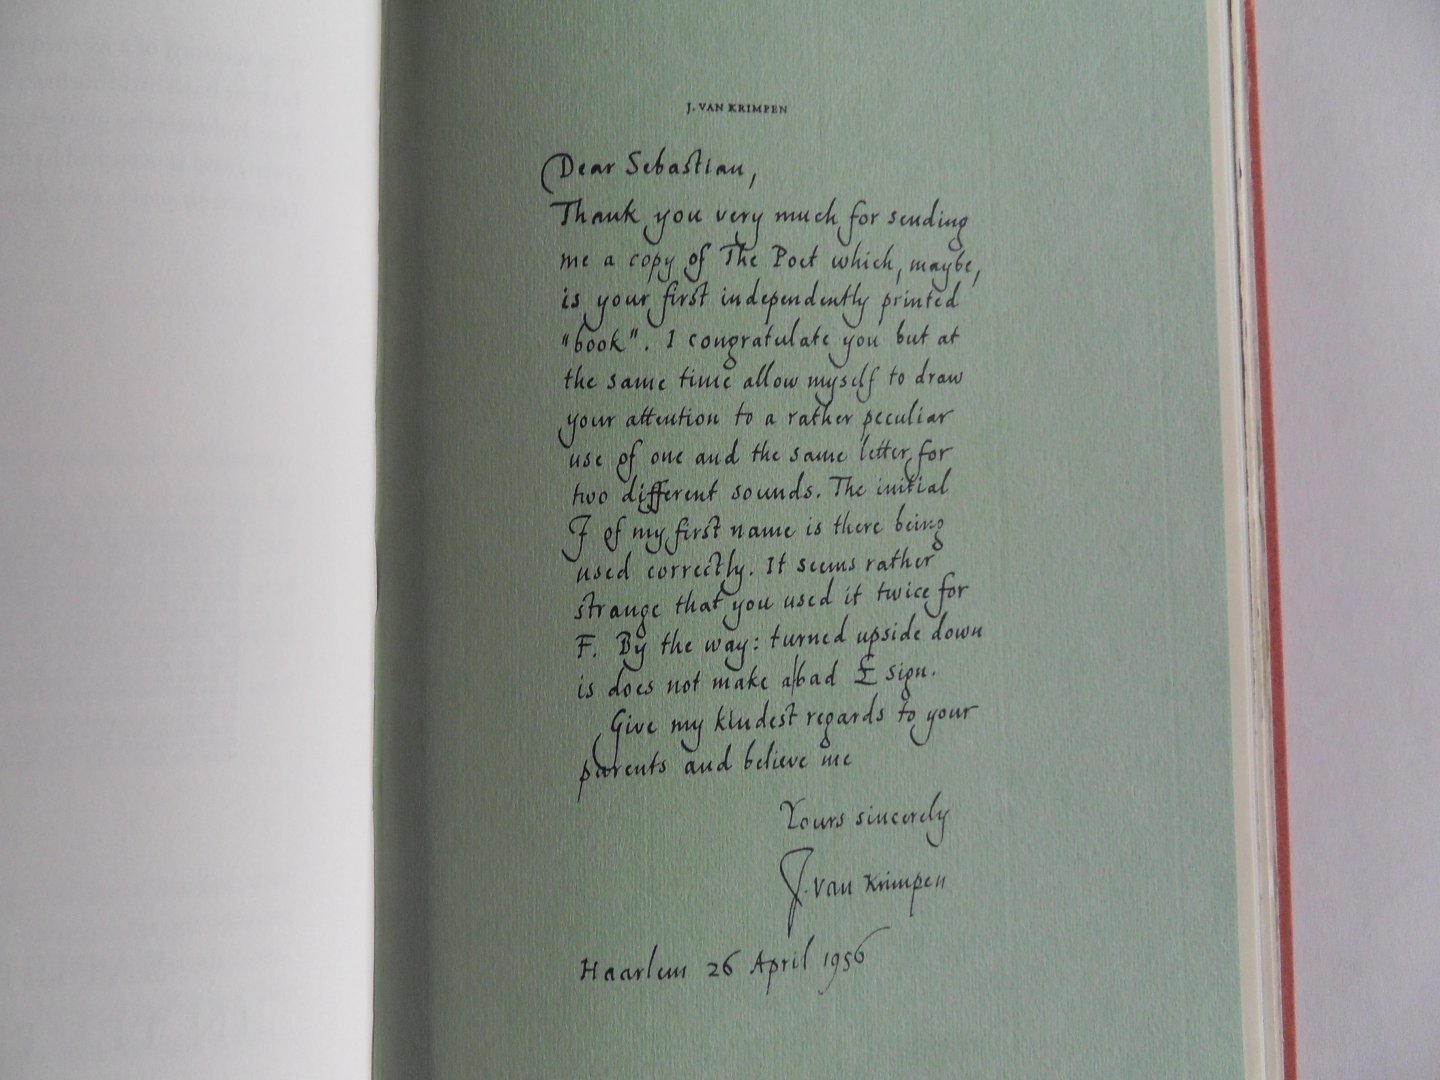 J. VAN KRIMPEN
Dear Sebastian,
Thank you very much for sending
me a copy of The Poet which, maybe,
is your first independently printed
"book". I congratulate you but at
the same time allow myself to draw
your attention to a rather peculiar
use of one and the same letter for
two different sounds. The initial
J of my first name is there being
used correctly. It seems rather
strange that you used it twice for
F. By the way: turned upside down
is does not make a bad £ sign.
Give my kindest regards to your
parents and believe me
Yours sincerely
J. van Krimpen
Haarlem 26 April 1956